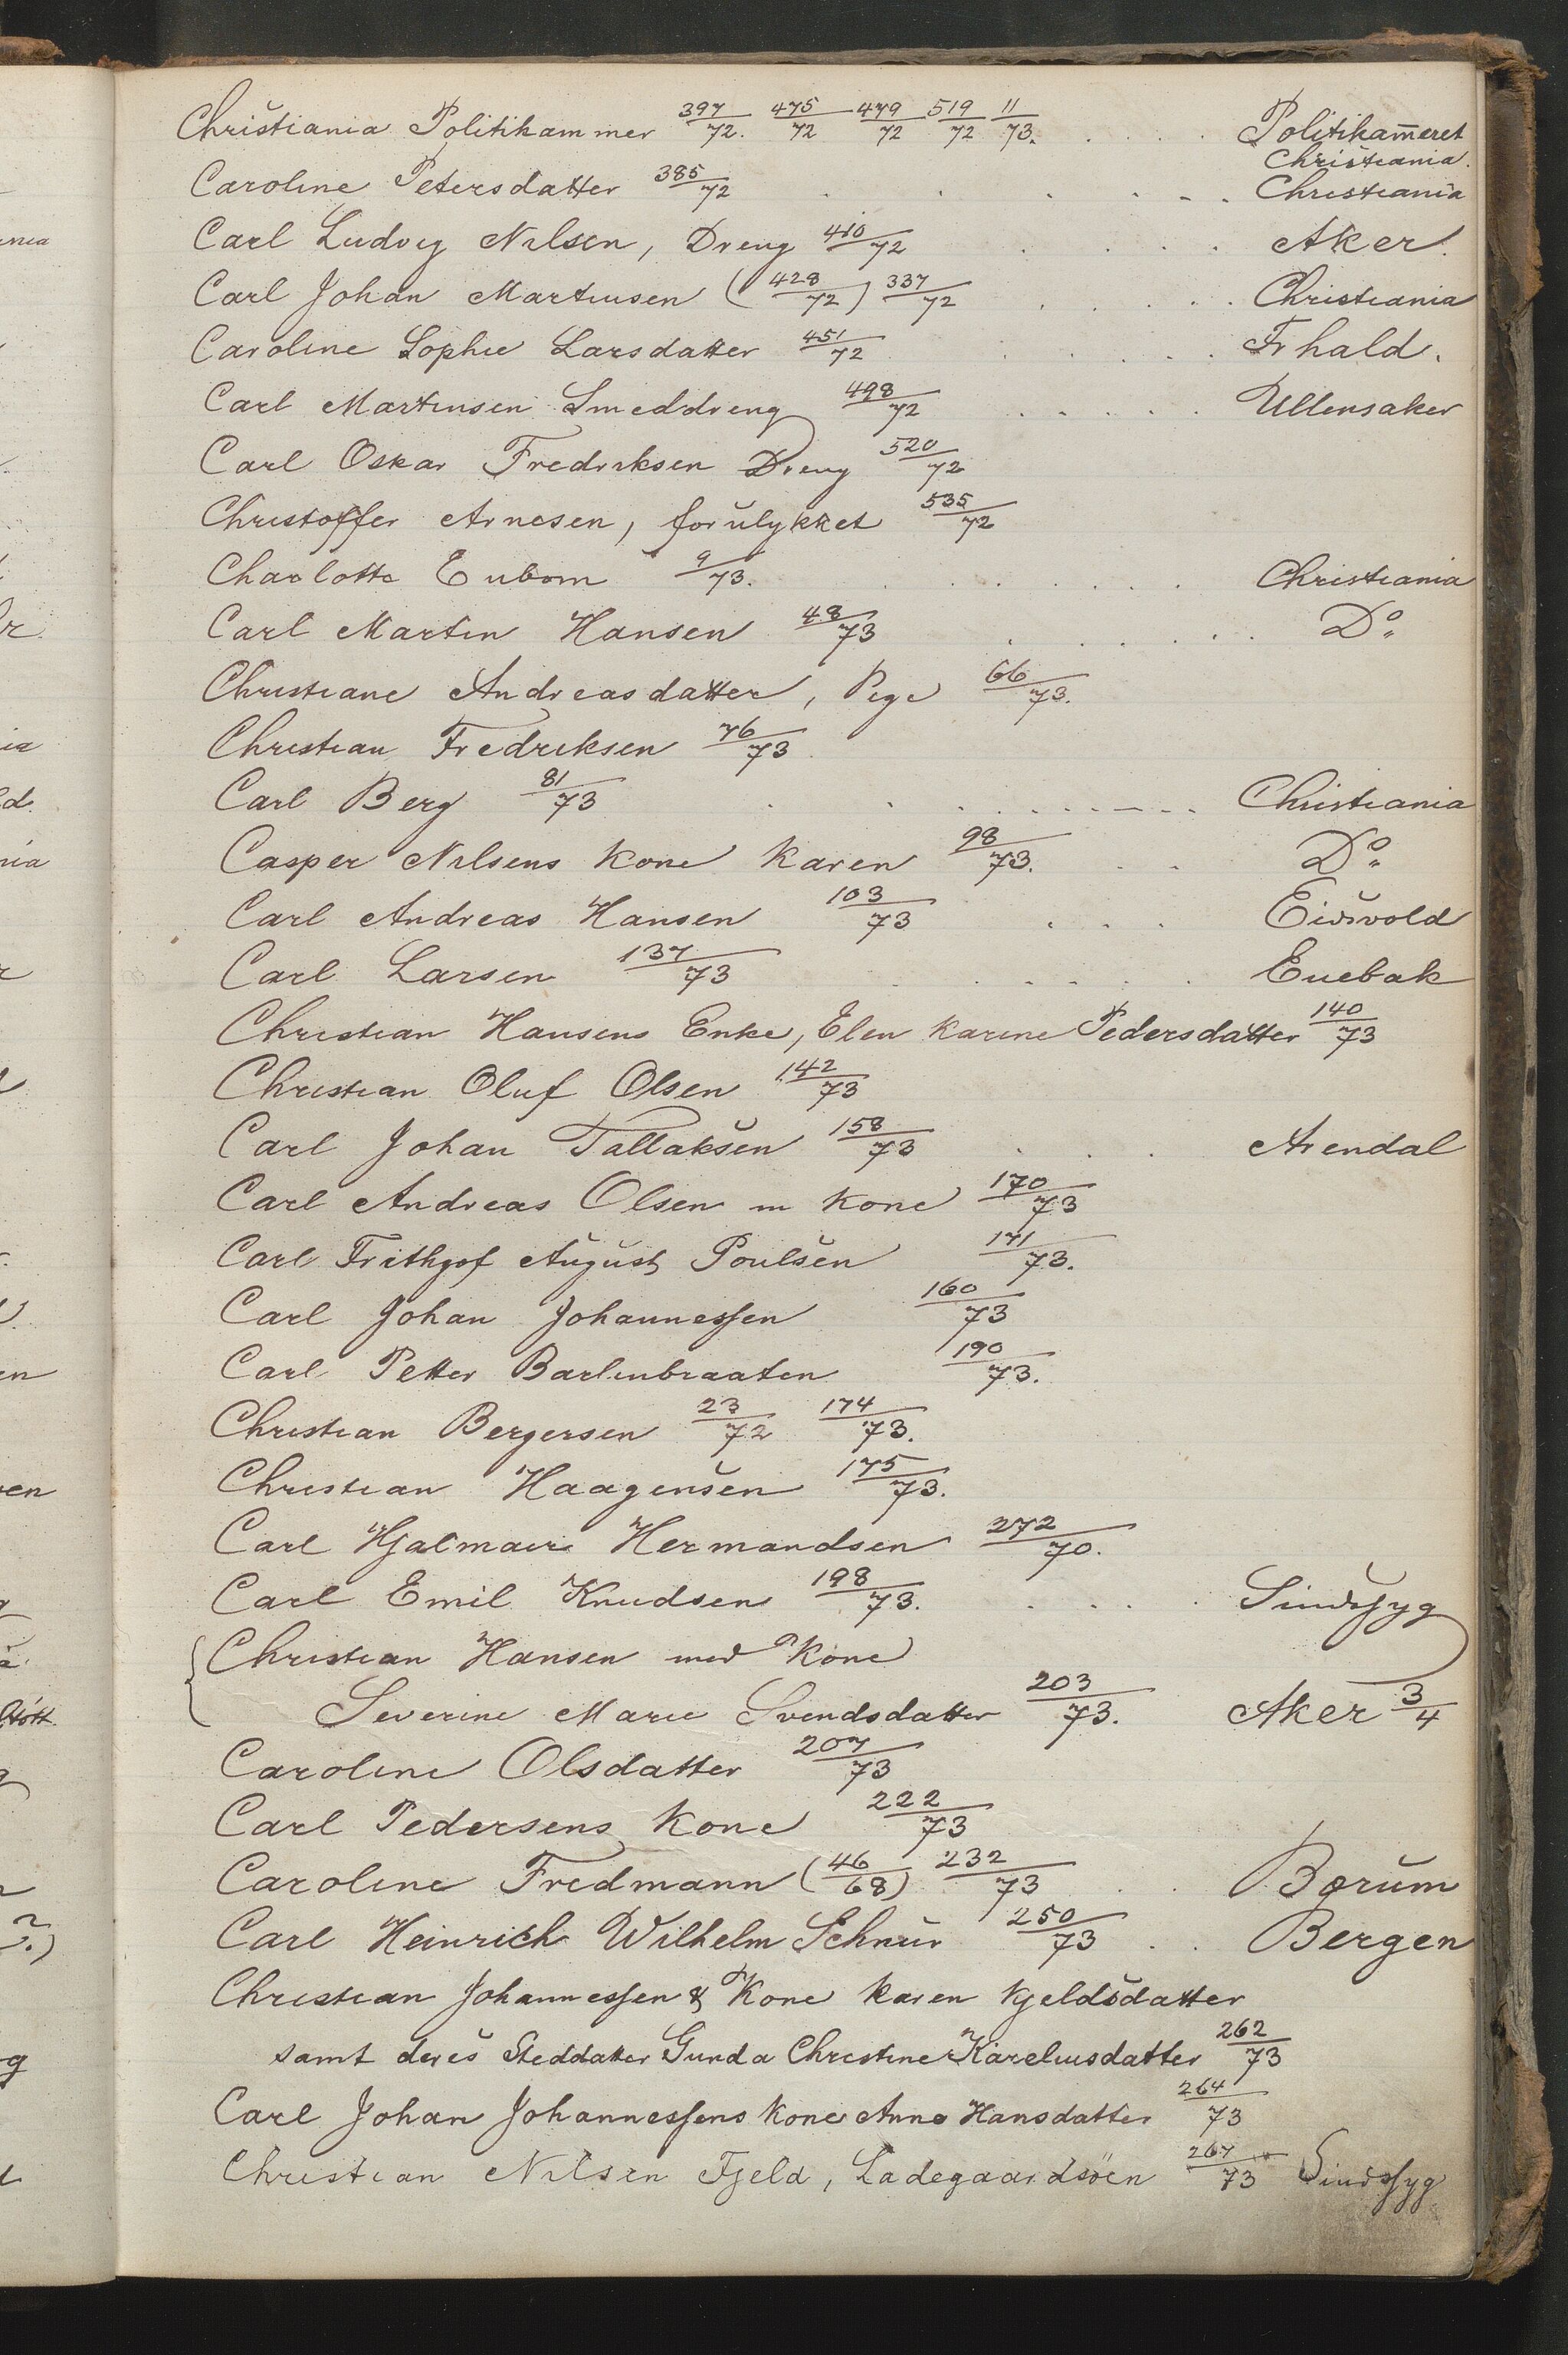 Christiania Politikammer 397/72. 475/72 479/72 519/72 11/73. . . . . Politikam̅eret
Christiania.
Caroline Petersdatter 385/72 . . . . . . Christiania
Carl Ludvig Nilsen, Dreng 410/72 . . . . Aker.
Carl Johan Martinsen (428/72) 337/72 . . . . . Christiania
Caroline Sophie Larsdatter 451/72 . . . . . Frhald.
Carl Martinsen Smeddreng 498/72 . . . . . Ullensaker
Carl Oskar Fredriksen Dreng 520/72
Christoffer Arnesen, forulykket 535/72
Charlotte Enbom 9/73. . . . . . . Christiania
Carl Martin Hansen 48/73 . . . . . . Do
Christiane Andreasdatter, Pige 66/73.
Christian Fredriksen 76/73
Carl Berg 81/73 . . . . . . . Christiania
Casper Nilsens Kone Karen 98/73. . . Do
Carl Andreas Hansen 103/73 . . . Eidsvold
Carl Larsen 137/73 . . . . . . Enebak
Christian Hansens Enke, Elen Karine Pedersdatter 140/73
Christian Oluf Olsen 142/73
Carl Johan Tallaksen 158/73 . . . Arendal
Carl Andreas Olsen m Kone 170/73
Carl Frithgof August Poulsen 171/73.
Carl Johan Johannessen 160/73
Carl Petter Barlinbraaten 190/73.
Christian Bergersen 23/72 174/73.
Christian Haagensen 175/73.
Carl Hjalmar Hermandsen 272/70.
Carl Emil Knudsen 198/73. . . . . Sindssyg
Christian Hansen med Kone
Severine Marie Svendsdatter 203/73. Aker 3/4
Caroline Olsdatter 207/73
Carl Pedersens Kone 222/73
Caroline Fredmann (46/68) 232/73 . . Bærum
Carl Heinrich Wilhelm Schnur 250/73 . . Bergen
Christian Johannessen & Kone Karen Kjeldsdatter
samt deres Steddatter Gunda Christine Kareliusdatter 262/73
Carl Johan Johannessens Kone Anne Hansdatter 264/73
Christian Nilsen Fjeld, Ladegaardsöen 267/73 Sindssyg